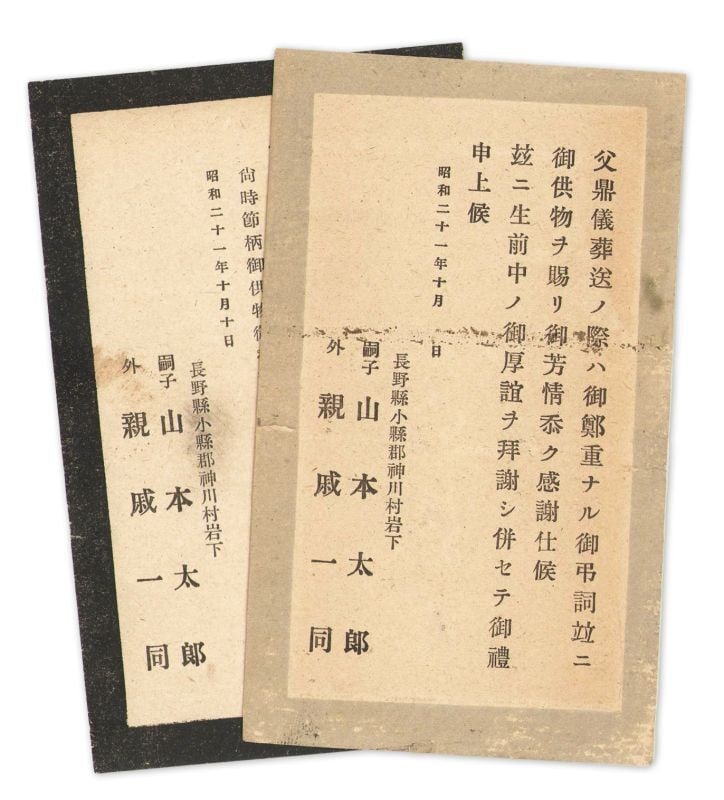 父鼎儀葬送ノ際ハ御鄭重ナル御弔詞竝ニ
御供物ヲ賜リ御芳情忝ク感謝仕候
玆ニ生前中ノ御厚誼ヲ拜謝シ併セテ御禮
申上候
昭和二十一年十月 日
長野縣小縣郡神川村岩下
嗣子 山本太郎
外 親戚一同
尙時節柄御供物御
昭和二十一年十月十日
長野縣小縣郡神川村岩下
嗣子 山本太郎
外 親戚一同